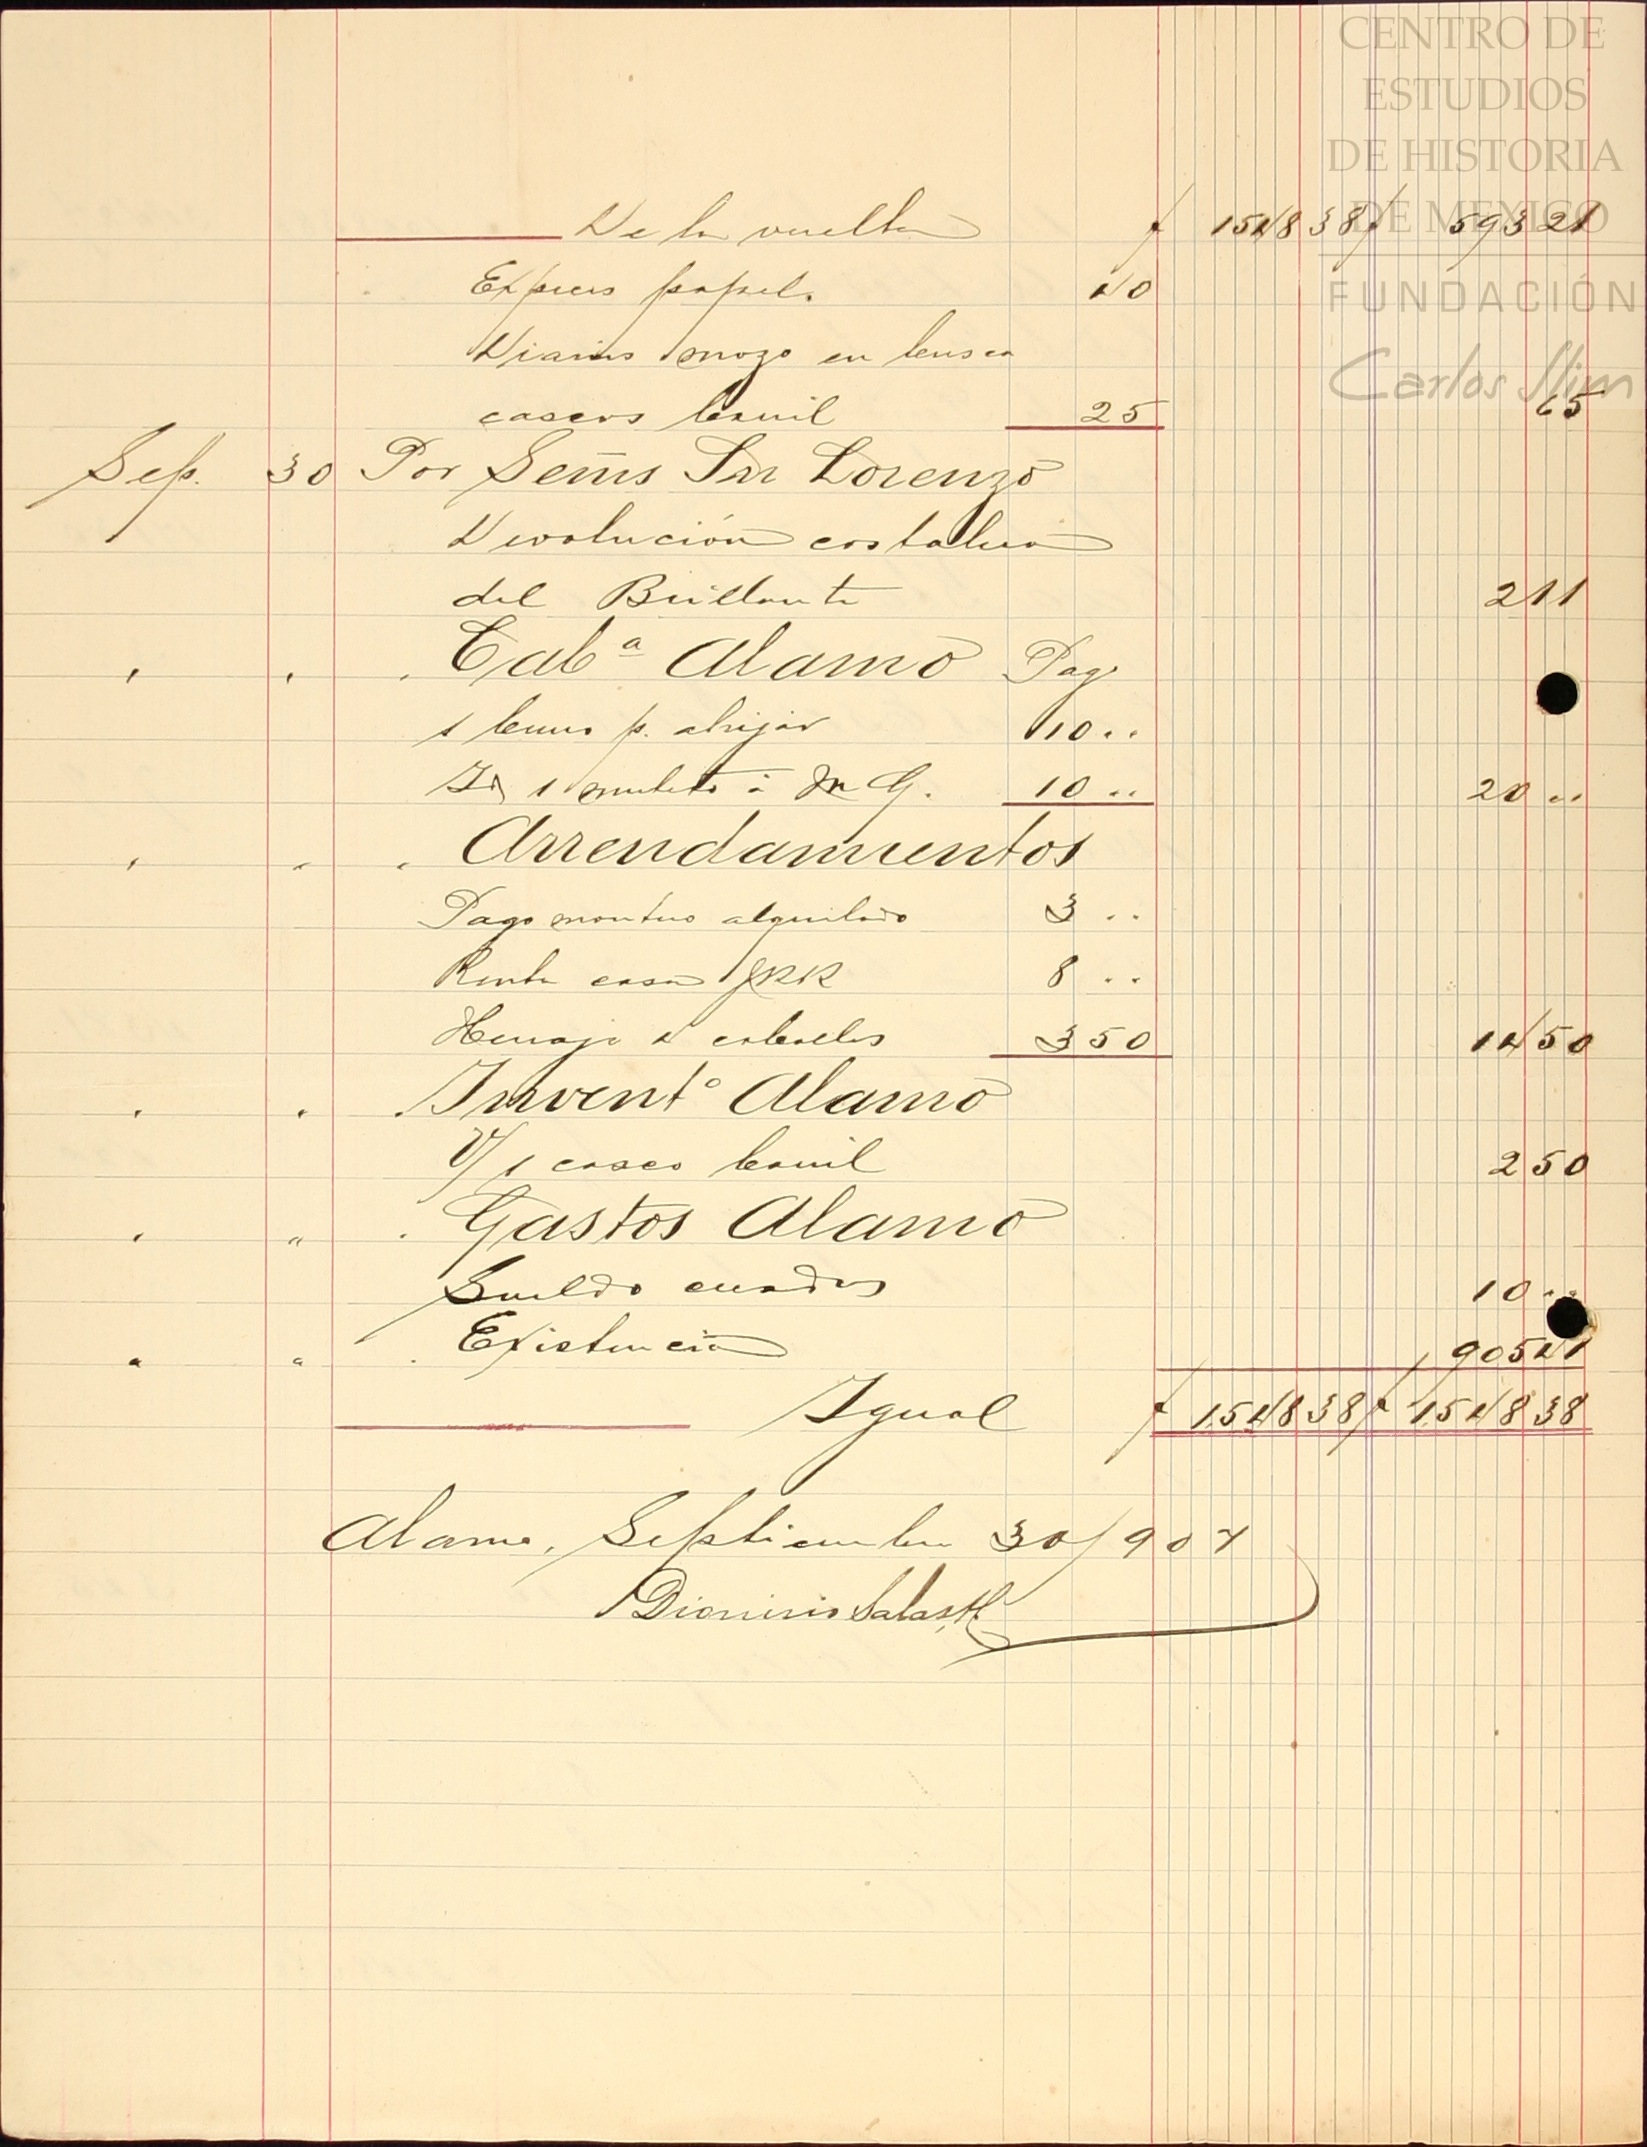 CENTRO DE
ESTUDIOS
DE HISTORIA
DE MEXICO
FUNDACIÓN
Carlos Slim
De la vuelta $ 1548 38 $ 593 21
Expres papel. 40
Diarios mozo en busca
cascos barril 25 65
Sep. 30 Por Sem̃s Sn Lorenzo
Devolución costalera
del Brillante 2 11
" " " Cabª Alamo Pag.
1 burro p. ahijar 10 ..
Id 1 muleto á M G. 10 .. 20 ..
" " " Arrendamientos
Pago montura alquilado 3 ..
Renta casa JRR 8 ..
Herraje 4 caballos 3 50 14 50
" " " Invent° Alamo
V/ 1 casco barril 2 50
" " " Gastos Alamo
Sueldo 10 ..
" " " Existencia 905 41
Igual $ 1548 38 $ 1548 38
Alamo, Septiembre 30/907
Dionisio Salas H.